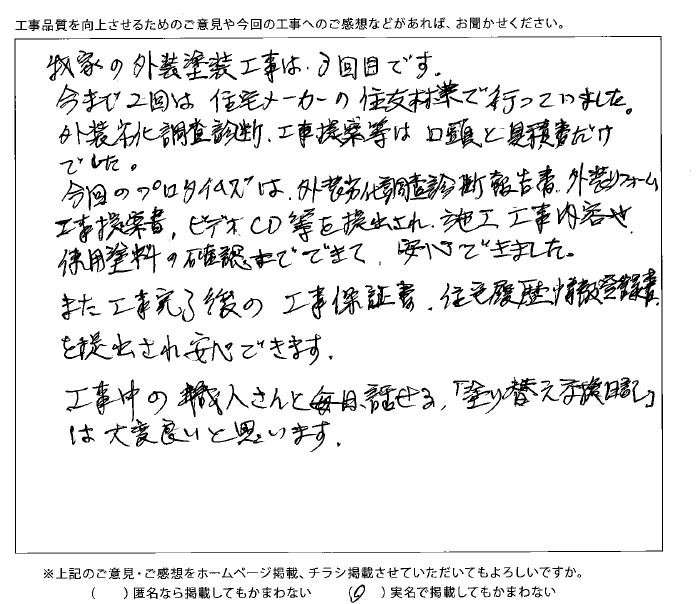 工事品質を向上させるためのご意見や今回の工事へのご感想などがあれば、お聞かせください。
我家の外装塗装工事は、3回目です。
今まで2回は住宅メーカーの住友林業で行っていました。
外装劣化調査診断、工事提案等は口頭と見積書だけ
でした。
今回のプロタイムズは、外装劣化調査診断報告書、外装リフォーム
工事提案書、ビデオCD等を提出され、施工工事内容や
使用塗料の確認までできて、安心できました。
また工事完了後の工事保証書、住宅履歴情報登録書
を提出され安心できます。
工事中の職人さんと毎日、話せる、「塗り替え交換日記」
は大変良いと思います。
※上記のご意見・ご感想をホームページ掲載、チラシ掲載させていただいてもよろしいですか。
(　)匿名なら掲載してもかまわない　(○)実名で掲載してもかまわない